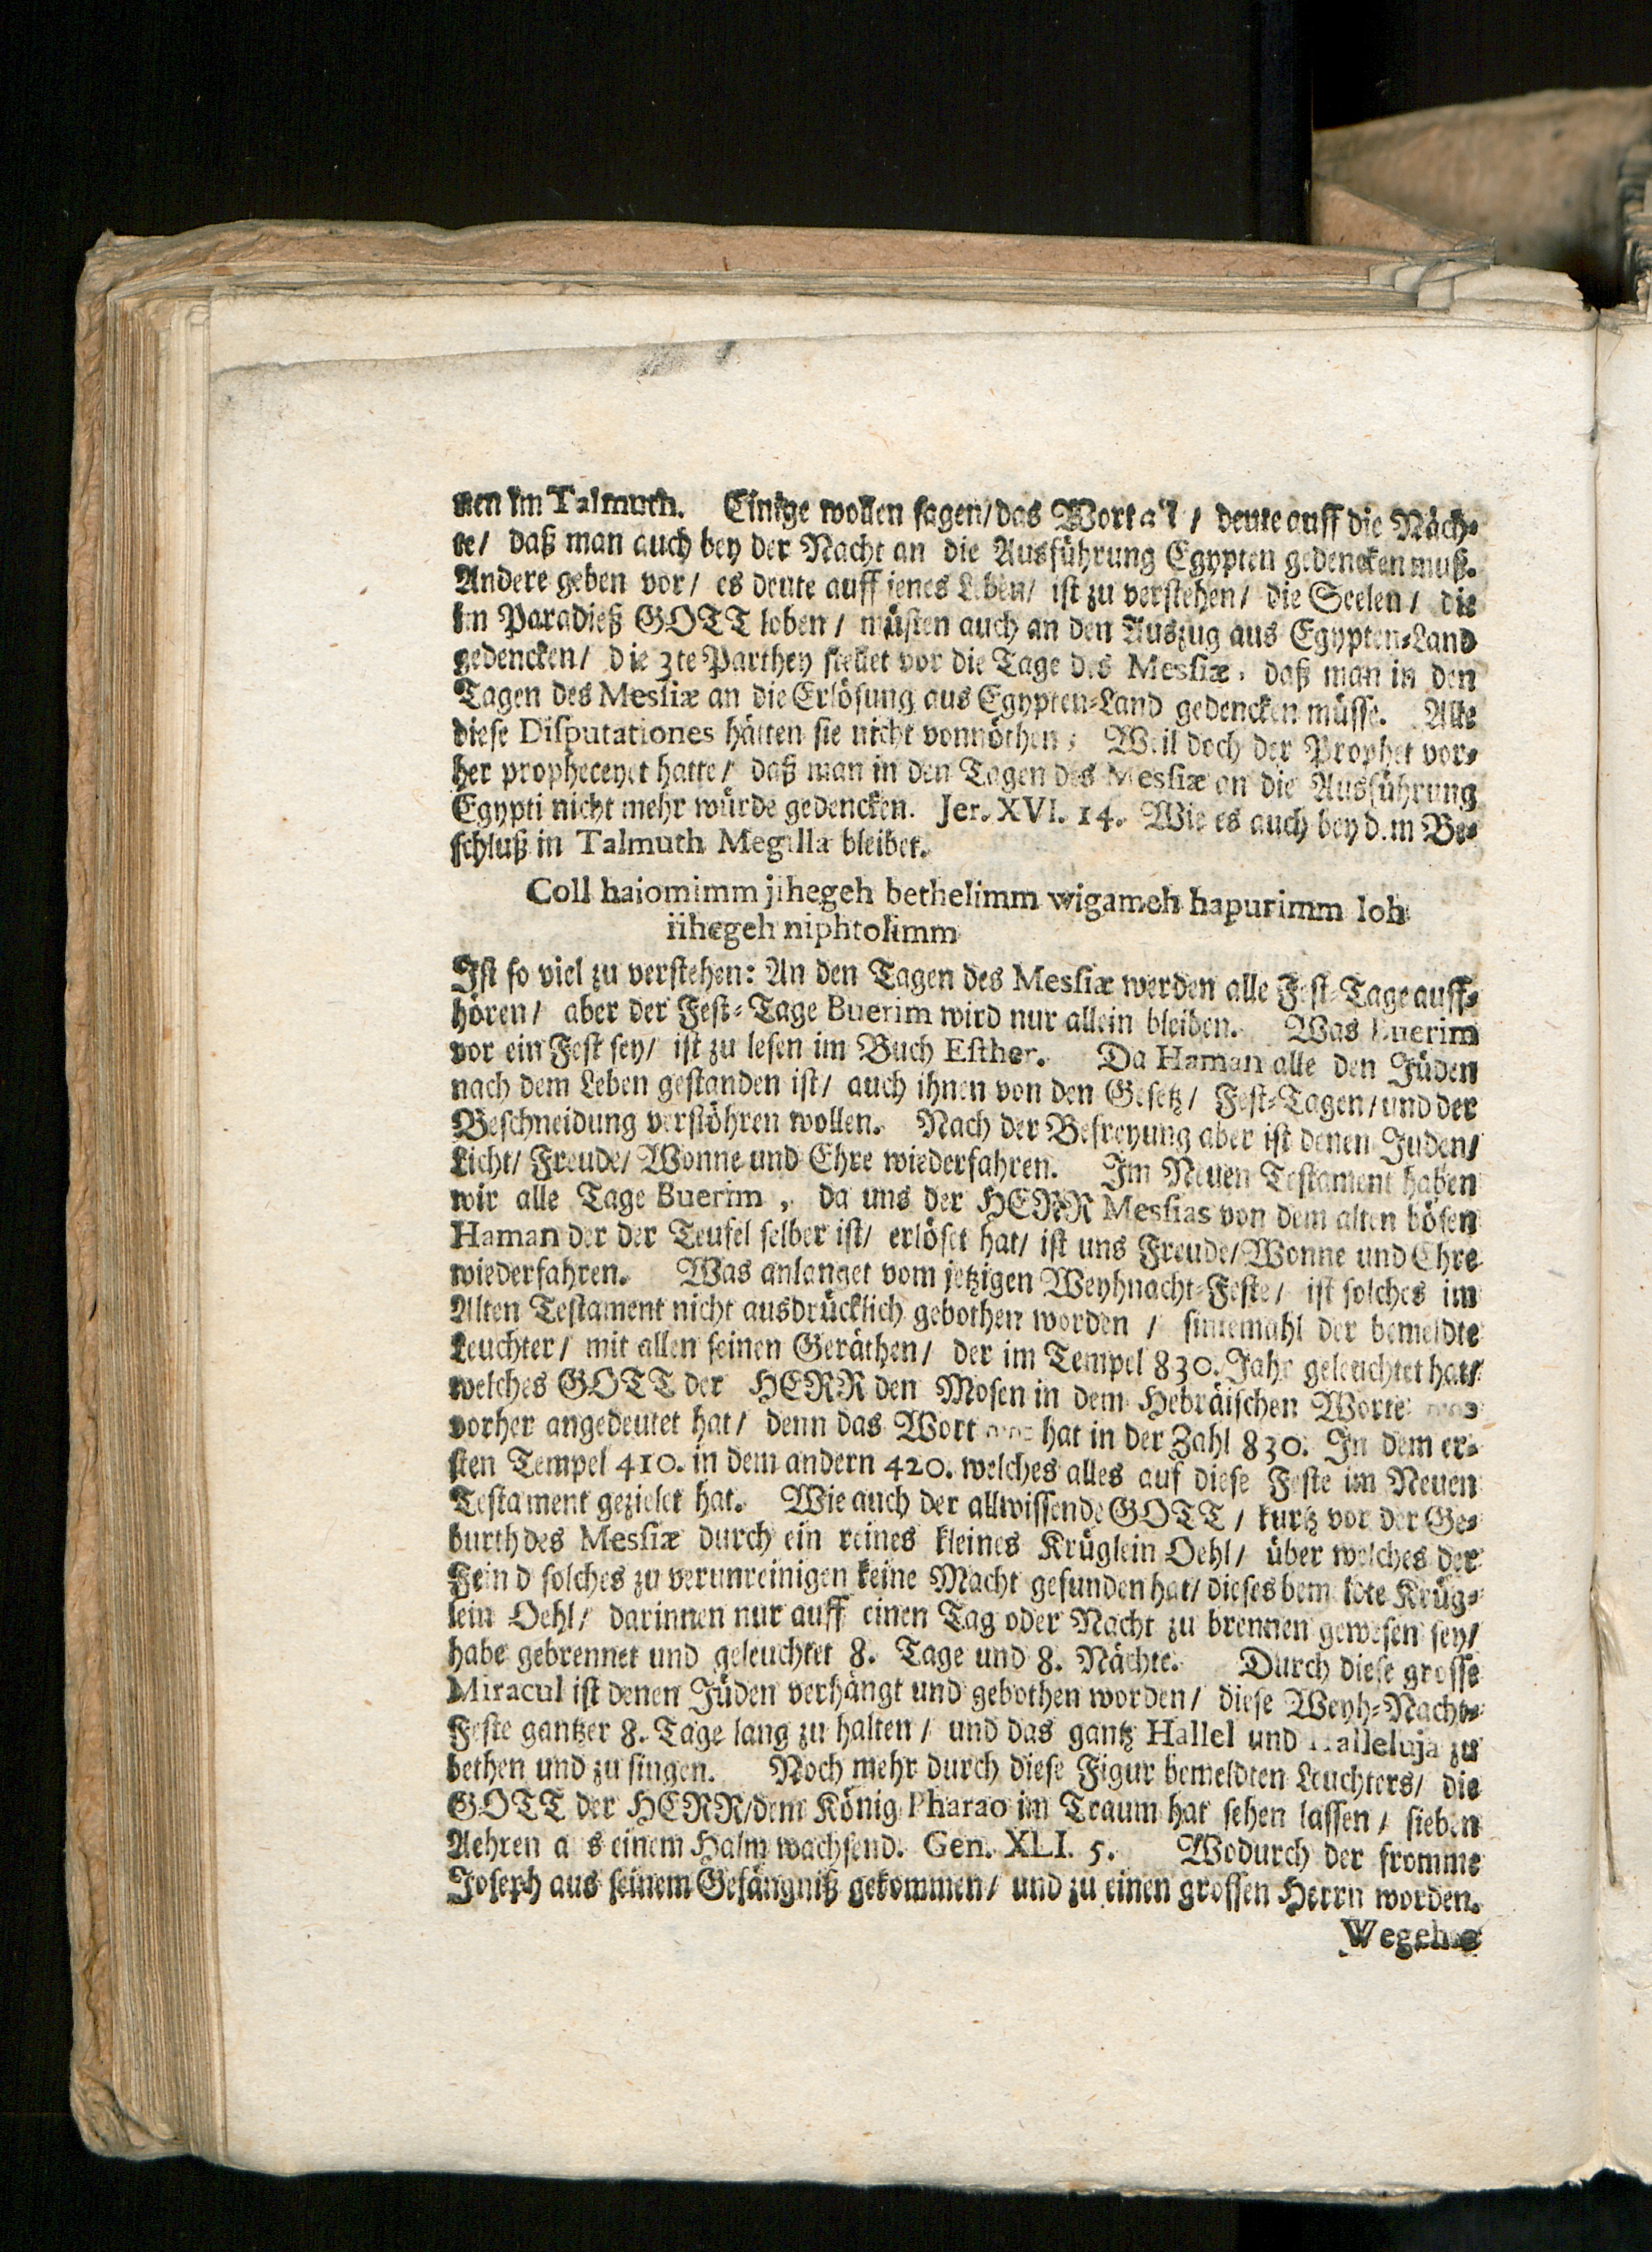 nen im Talmuth. Einige wollen sagen/ das Wort a'l / deute auff die Näch⸗
te/ daß man auch bey der Nacht an die Ausführung Egypten gedencken muß.
Andere geben vor/ es deute auff jenes Leben/ ist zu verstehen/ die Seelen/ die
im Paradieß GOTT loben/ müsten auch an den Auszug aus Egypten⸗Land
gedencken/ die 3te Parthey stellet vor die Tage des Messiæ, daß man in den
Tagen des Messiæ an die Erlösung aus Egypten⸗Land gedencken müsse. Alle
diese Disputationes hätten sie nicht vonnöthen; Weil doch der Prophet vor⸗
her propheceyet hatte/ daß man in den Tagen des Messiæ an die Ausführung
Egypti nicht mehr würde gedencken. Jer. XVI. 14. Wie es auch bey dem Be⸗
schluß in Talmuth Megilla bleibet.
Coll haiomimm jihegeh bethelimm wigameh hapurimm loh
iihegeh niphtolimm
Ist so viel zu verstehen: An den Tagen des Messiæ werden alle Fest⸗Tage auff⸗
hören/ aber der Fest⸗Tage Buerim wird nur allein bleiben. Was Buerim
vor ein Fest sey/ ist zu lesen im Buch Esther. Da Haman alle den Jüden
nach dem Leben gestanden ist/ auch ihnen von den Gesetz/ Fest⸗Tagen/ und der
Beschneidung verstöhren wollen. Nach der Befreyung aber ist denen Juden/
Licht/ Freude/ Wonne und Ehre wiederfahren. Im Neuen Testament haben
wir alle Tage Buerim, da uns der HERR Messias von dem alten bösen
Haman der der Teufel selber ist/ erlöset hat/ ist uns Freude/ Wonne und Ehre
wiederfahren. Was anlanget vom jetzigen Weyhnacht⸗Feste/ ist solches im
Alten Testament nicht ausdrücklich gebothen worden / sintemahl der bemeldte
Leuchter/ mit allen seinen Geräthen/ der im Tempel 830. Jahr geleuchtet hat/
welches GOTT der HERR den Mosen in dem Hebräischen Worte
vorher angedeutet hat/ denn das Wort hat in der Zahl 830. In dem er⸗
sten Tempel 410. in dem andern 420. welches alles auf diese Feste im Neuen
Testament gezielet hat. Wie auch der allwissende GOTT / kurtz vor der Ge⸗
burth des Messiæ durch ein reines kleines Krüglein Oehl/ über welches der
Feind solches zu verunreinigen keine Macht gefunden hat/ dieses bemeldte Krüg⸗
lein Oehl/ darinnen nur auff einen Tag oder Nacht zu brennen gewesen sey/
habe gebrennet und geleuchtet 8. Tage und 8. Nächte. Durch diese grosse
Miracul ist denen Jüden verhängt und gebothen worden/ diese Weyh⸗Nacht⸗
Feste gantzer 8. Tage lang zu halten / und das gantz Hallel und Halleluja zu
bethen und zu singen. Noch mehr durch diese Figur bemeldten Leuchters/ die
GOTT der HERR/ dem König Pharao im Traum hat sehen lassen / sieben
Aehren a s einem Halm wachsend. Gen. XLI. 5. Wodurch der fromme
Joseph aus seinem Gefängniß gekommen/ und zu einen grossen Herrn worden.